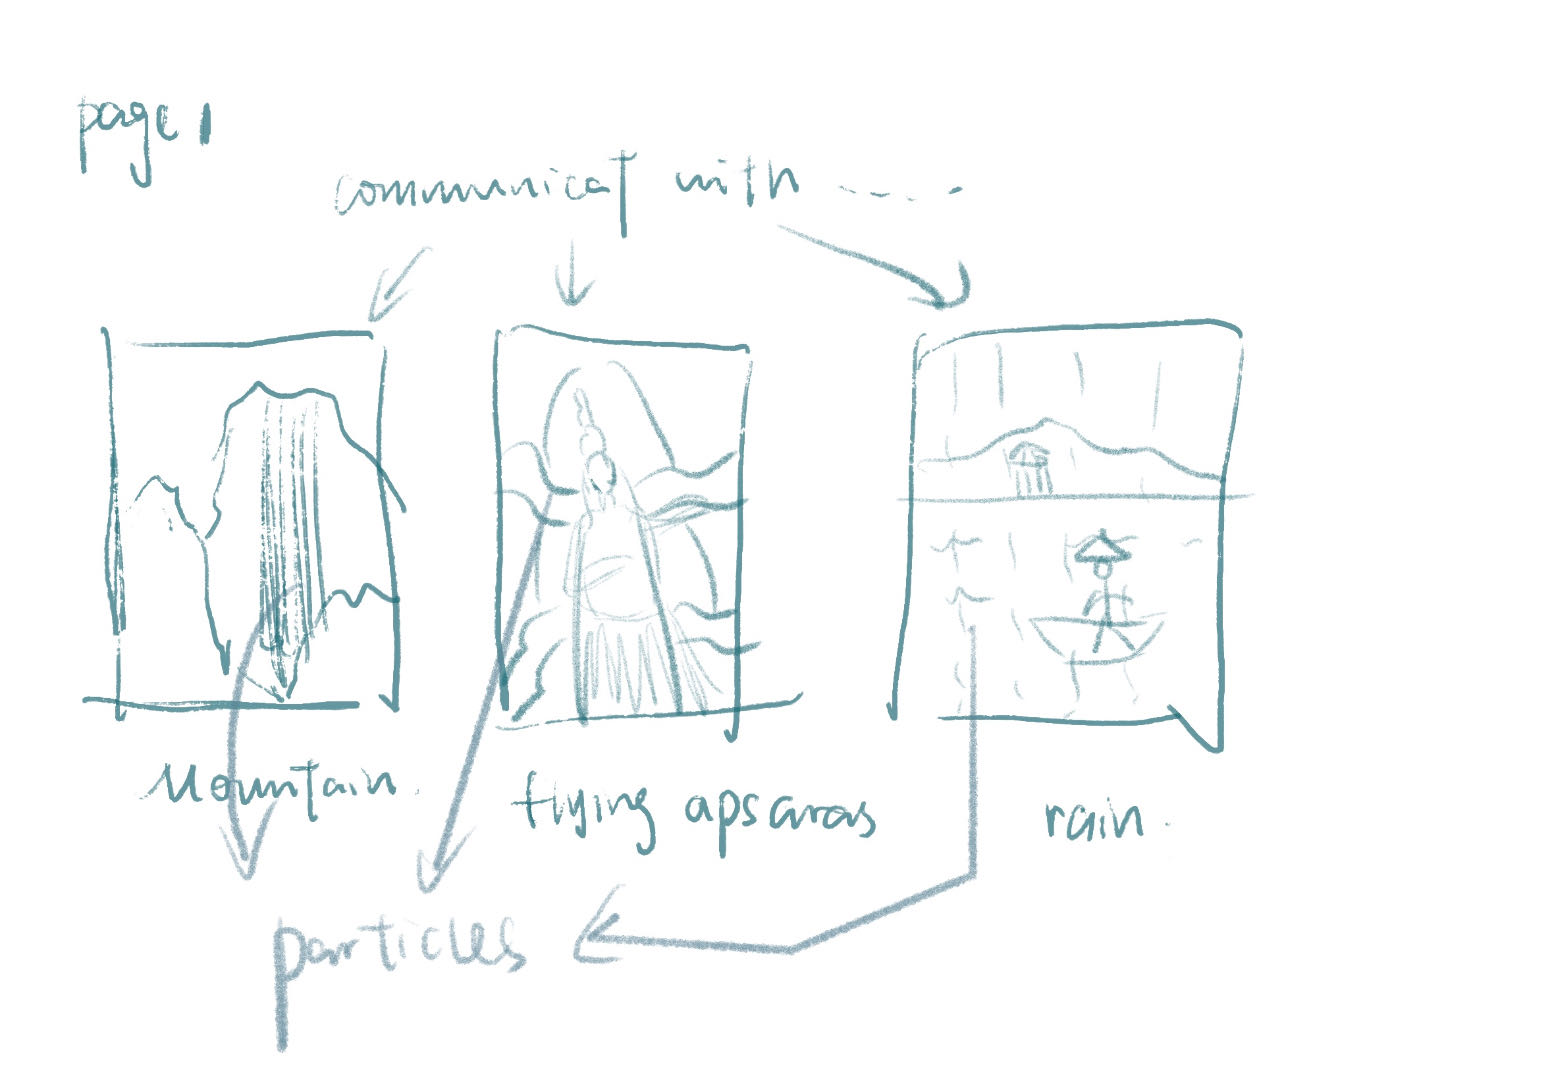 page 1
communicat with -----
Mountain.
flying apsaras
rain.
particles